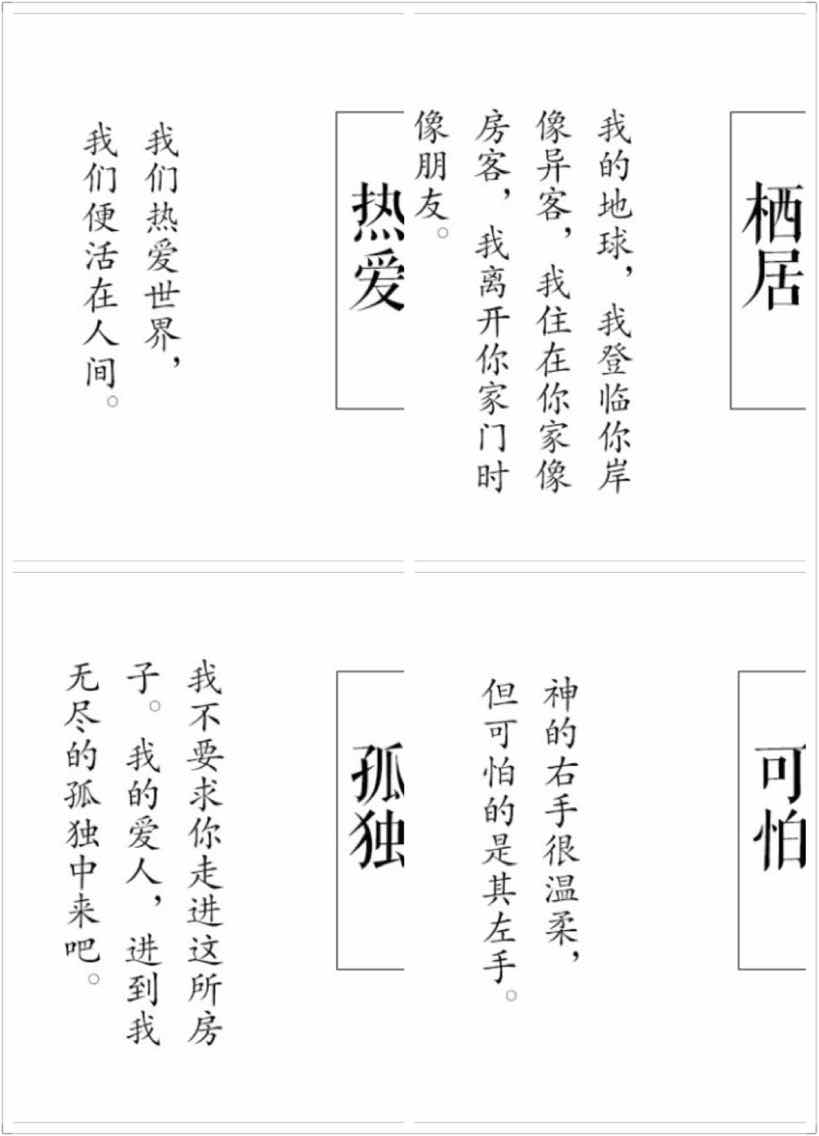 热爱
我们热爱世界，
我们便活在人间。
栖居
我的地球，我登临你岸
像异客，我住在你家像
房客，我离开你家门时
像朋友。
孤独
我不要求你走进这所房
子。我的爱人，进到我
无尽的孤独中来吧。
可怕
神的右手很温柔，
但可怕的是其左手。